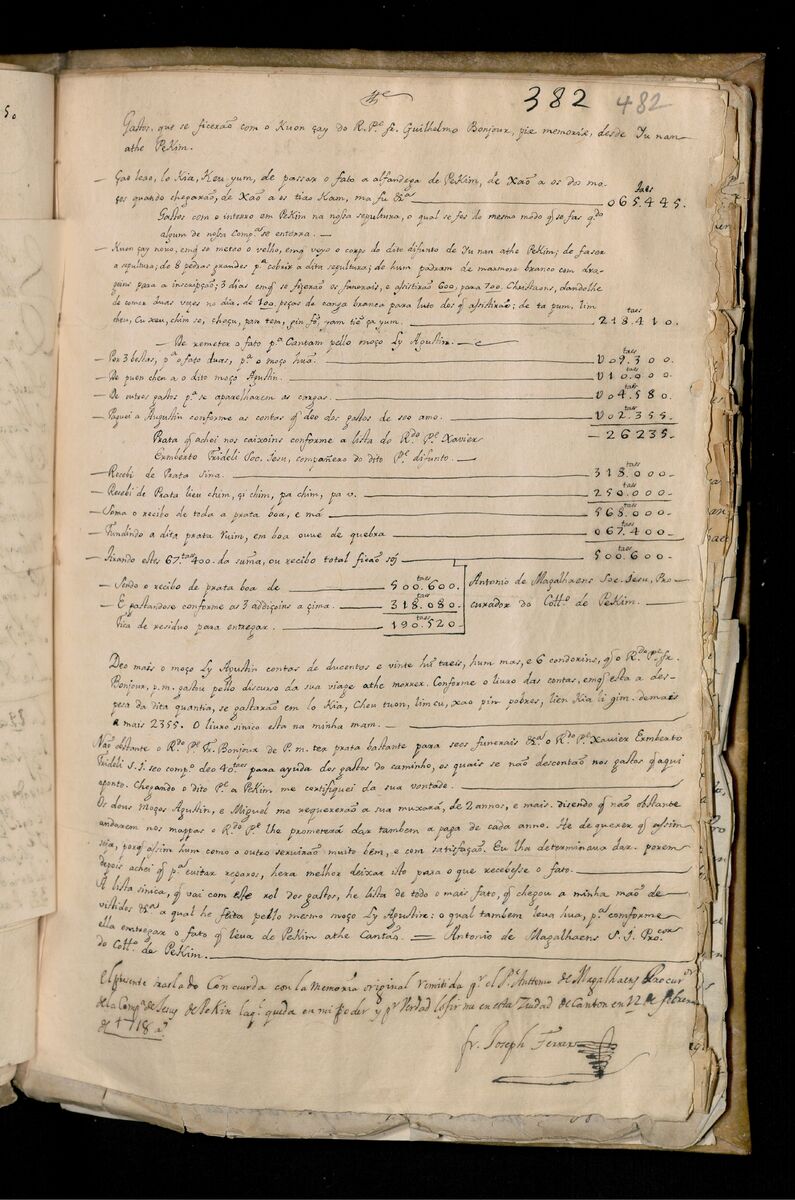 382 482
Gastos, que se ficerão com o Kuon çay do R. P.e fr. Guilhelmo Bonjour, piæ memoriæ, desde Yu nan
athe PeKim.
Taes
— Gao leao, lo Kia, Keu yum, de passar o fato a alfandega de PeKim, de Xaõ a os dos mo-
ços quando chegarão, de Xaõ a os tiao Kam, ma fu &.as — 065.445.
Gastos com o interro em PeKim na nossa sepultura, o qual se fes do mesmo modo q̃ se fas q.do
algum de nossa Comp.a se enterra. —
— Kuon çay novo, em q̃ se meteo o velho, em q̃ veyo o corpo do dito difunto de Yu nan athe PeKim; de faser
a sepultura; de 8 pedras grandes p.a cobrir a dita sepultura; de hum padram de marmore branco com dra-
guns para a inscripção; 3 dias em q̃ se fizerão os funerais, e assistirão 600, para 700 Christaons, dandolhe
de comer duas veses no dia. de 100 peças de canga branca para luto dos q̃ assistirão; de ta pum. lim
theu, Cu xeu, chim se, choçu, pan tem, pin fõ, yam tiẽ ça yum. — 218.410.
— De remeter o fato p.a Cantam pello moço Ly Agustin. —
— Por 3 bestas, p.a o fato duas, p.a o moço huã. — 009.300—
— De puen chen a o dito moço Agustin. — 010.000—
— De outros gastos p.a se aparelharem as cargas. — 004.580—
— Paguei a Augustin conforme as contas q̃ deo dos gastos de seo amo. — 002.355—
— 26235—
Prata q̃ achei nos caixoins conforme a lista do R.do P.e Xavier
Ermberto Frideli Soc. Jesu, compañero do dito P.e difunto. —
— Recebi de Prata Sina. — 318.000—
— Recebi de Prata lieu chim, çi chim, pa chim, pa o. — 250.000—
— Soma o recibo de toda a prata boa, e má — 568.000—
— Fundindo a dita prata ruim, em boa ouve de quebra — 067.400—
— Tirando estes 67 taes 400. da suma, ou recibo total ficão sój — 500.600—
— Sendo o recibo de prata boa de — 500.600.
— E gastandose conforme as 3 addiçoins a çima. — 318.080—
Fica de residuo para entregar. — 190.520
Antonio de Magalhaens Soc. Jesu, Pro-
curador do Coll.o de PeKim. —
Deo mais o moço Ly Agustin contas de ducentos e vinte hũ taeis, hum mas, e 6 condorins, q̃ o R.do P.e fr.
Bonjour, p. m. gastou pello discurso da sua viage athe morrer. Conforme o livro das contas, em q̃ esta a des-
pesa da dita quantia, se gastarão em lo Kia, Cheu tuon, lim cu, xao pin pobres, lien Kia li gim. de mais
a mais 2355. O livro sinico esta na minha mam. —
Não obstante o R.do P.e Fr. Bonjour de P. m. ter prata bastante para seos funerais &.a o R.do P.e Xavier Ermberto
Frideli S. J. seo comp.o deo 40 taes para ayuda dos gastos do caminho, os quais se não descontão nos gastos q̃ aqui
aponto. Chegando o dito P.e a PeKim me certifiquei da sua vontade. —
Os dous moços Agustin, e Miguel me requererão a sua muxará, de 2 annos, e mais. disendo q̃ não obstante
andarem nos mappas o R.do P.e lhe prometerá dar tambem a paga de cada anno. He de querer q̃ assim
seja, porq̃ assim hum como o outro servirão muito bem, e com satisfação. Eu lha determinava dar. porem
depois achei q̃ p.a evitar reparos, hera melhor deixar isto para o que recebesse o fato. —
A lista sinica, q̃ vai com este rol dos gastos, he lista de todo o mais fato, q̃ chegou a minha mão de
vistidos &.a a qual he feita pello mesmo moço Ly Agustin: o qual tambem leva hua, p.a comforme
ella entregar o fato q̃ leva de PeKim athe Cantão. = Antonio de Magalhaens S. J. Pro.cor
do Coll.o de PeKim. —
El presente traslado Concuerda con la Memoria original remitida p.r el P. Antonio de Magalhaens Procur.or
de la Comp.a de Jesus de PeKin laq.l queda en mi poder y p.r Verdad lo firme en esta Ciudad de Canton en 22 de febrero
de 1718 a.s
fr. Joseph Ferrer